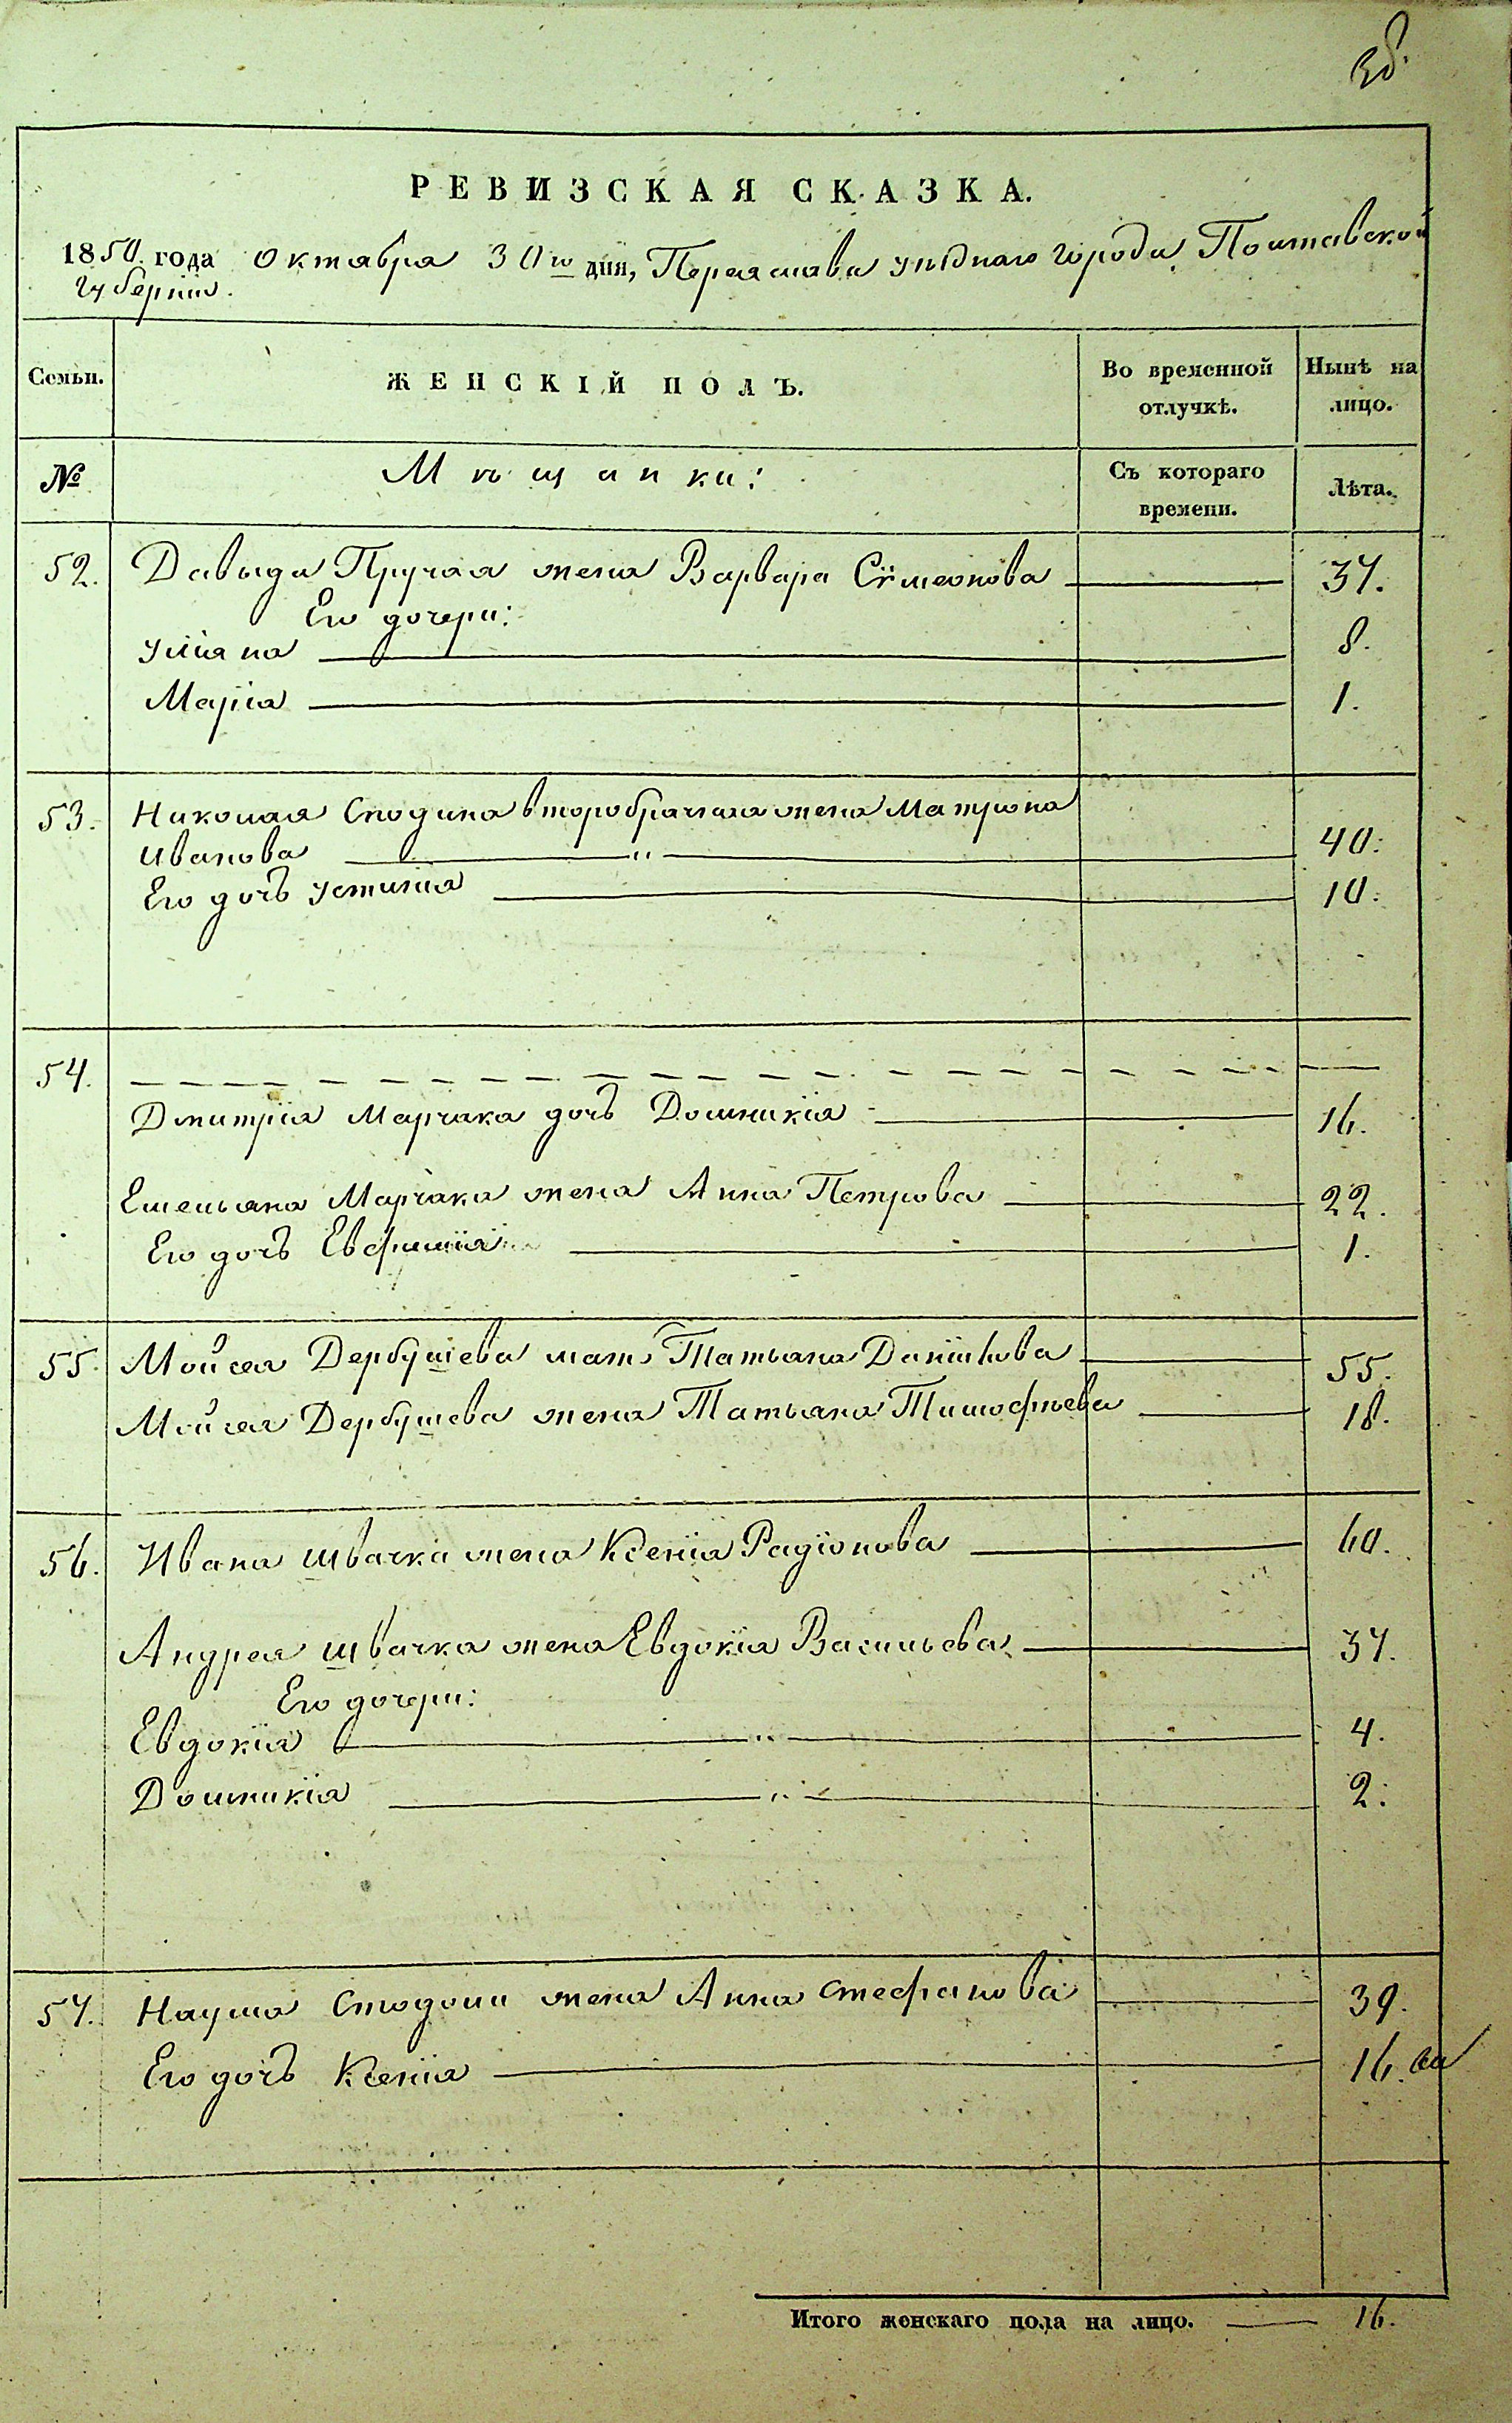 38.
РЕВИЗСКАЯ СКАЗКА.
1850. года Октября 30го дня, Переяслава уѣзднаго города, Полтавской
Губерніи.
Семьи.
ЖЕНСКІЙ ПОЛЪ.
Во временной отлучкѣ.
Нынѣ на лицо.
№
Мѣщанки:
Съ котораго времени.
Лѣта.
52. Давыда Пручая жена Варвара Сѵмеонова 37.
Его дочери:
Уліяна 8.
Марія 1.
53. Николая Сподина второбрачная жена Матрона
Иванова " 40.
Его дочь Устинія 10.
54.
Дмитрія Марчака дочь Домникія 16.
Емельяна Марчака жена Анна Петрова 22.
Его дочь Евфимія 1.
55. Мойсея Дербушева мать Татьяна Данілова 55.
Мойсея Дербушева жена Татьяна Тимофѣева 18.
56. Ивана Швачка жена Ксенія Радіонова 60.
Андрея Швачка жена Евдокія Васильева 37.
Его дочери:
Евдокія " 4.
Домникія " 2.
57. Наума Стодоли жена Анна Стефанова 39.
Его дочь Ксенія 16.
Итого женскаго пола на лицо. 16.